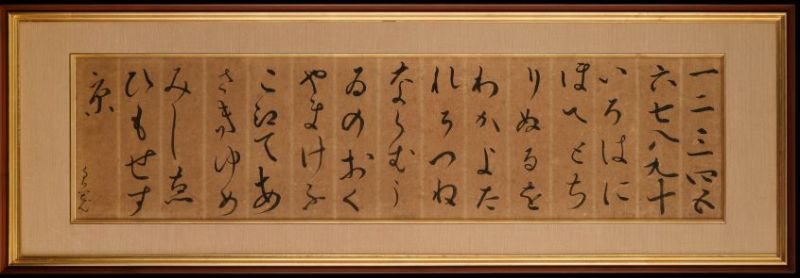 一二三四五
六七八九十
いろはに
ほへとち
りぬるを
わかよた
れそつね
ならむう
ゐのおく
やまけふ
こえてあ
さきゆめ
みしゑ
ひもせす
京